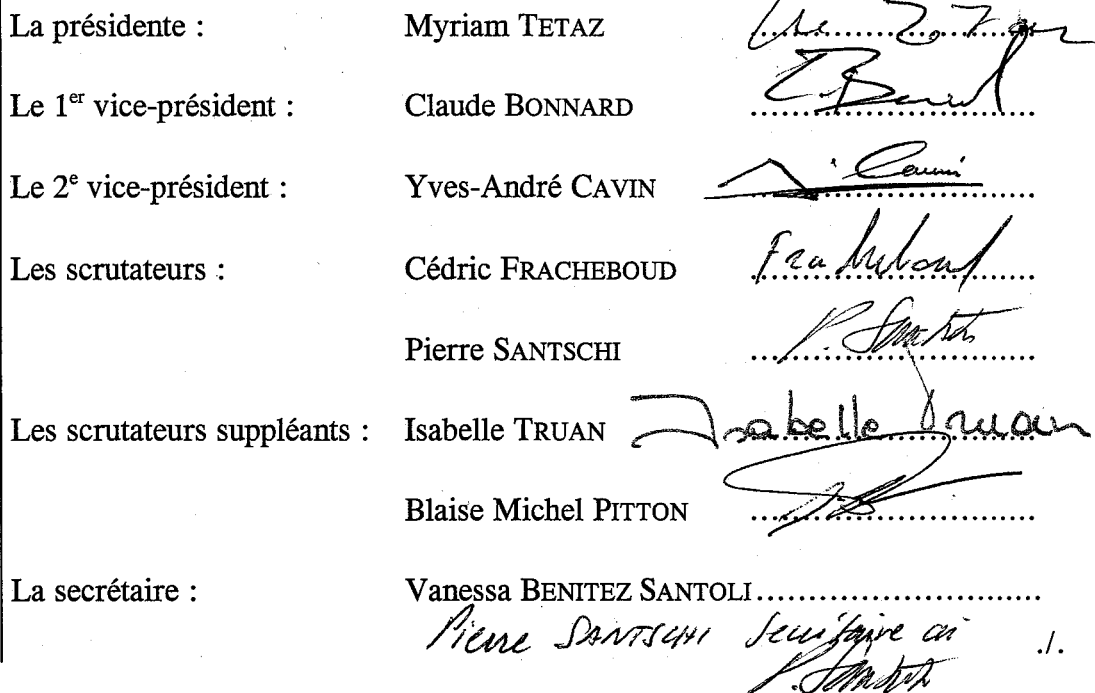 La présidente : Myriam TETAZ
Le 1er vice-président : Claude BONNARD ........ C. Bonnard
Le 2e vice-président : Yves-André CAVIN ........ Cavin
Les scrutateurs : Cédric FRACHEBOUD ........ Fracheboud
Pierre SANTSCHI ........ P. Santschi
Les scrutateurs suppléants : Isabelle TRUAN Isabelle Truan
Blaise Michel PITTON ........
La secrétaire : Vanessa BENITEZ SANTOLI ........
Pierre SANTSCHI Secrétaire ai ./.
P. Santschi